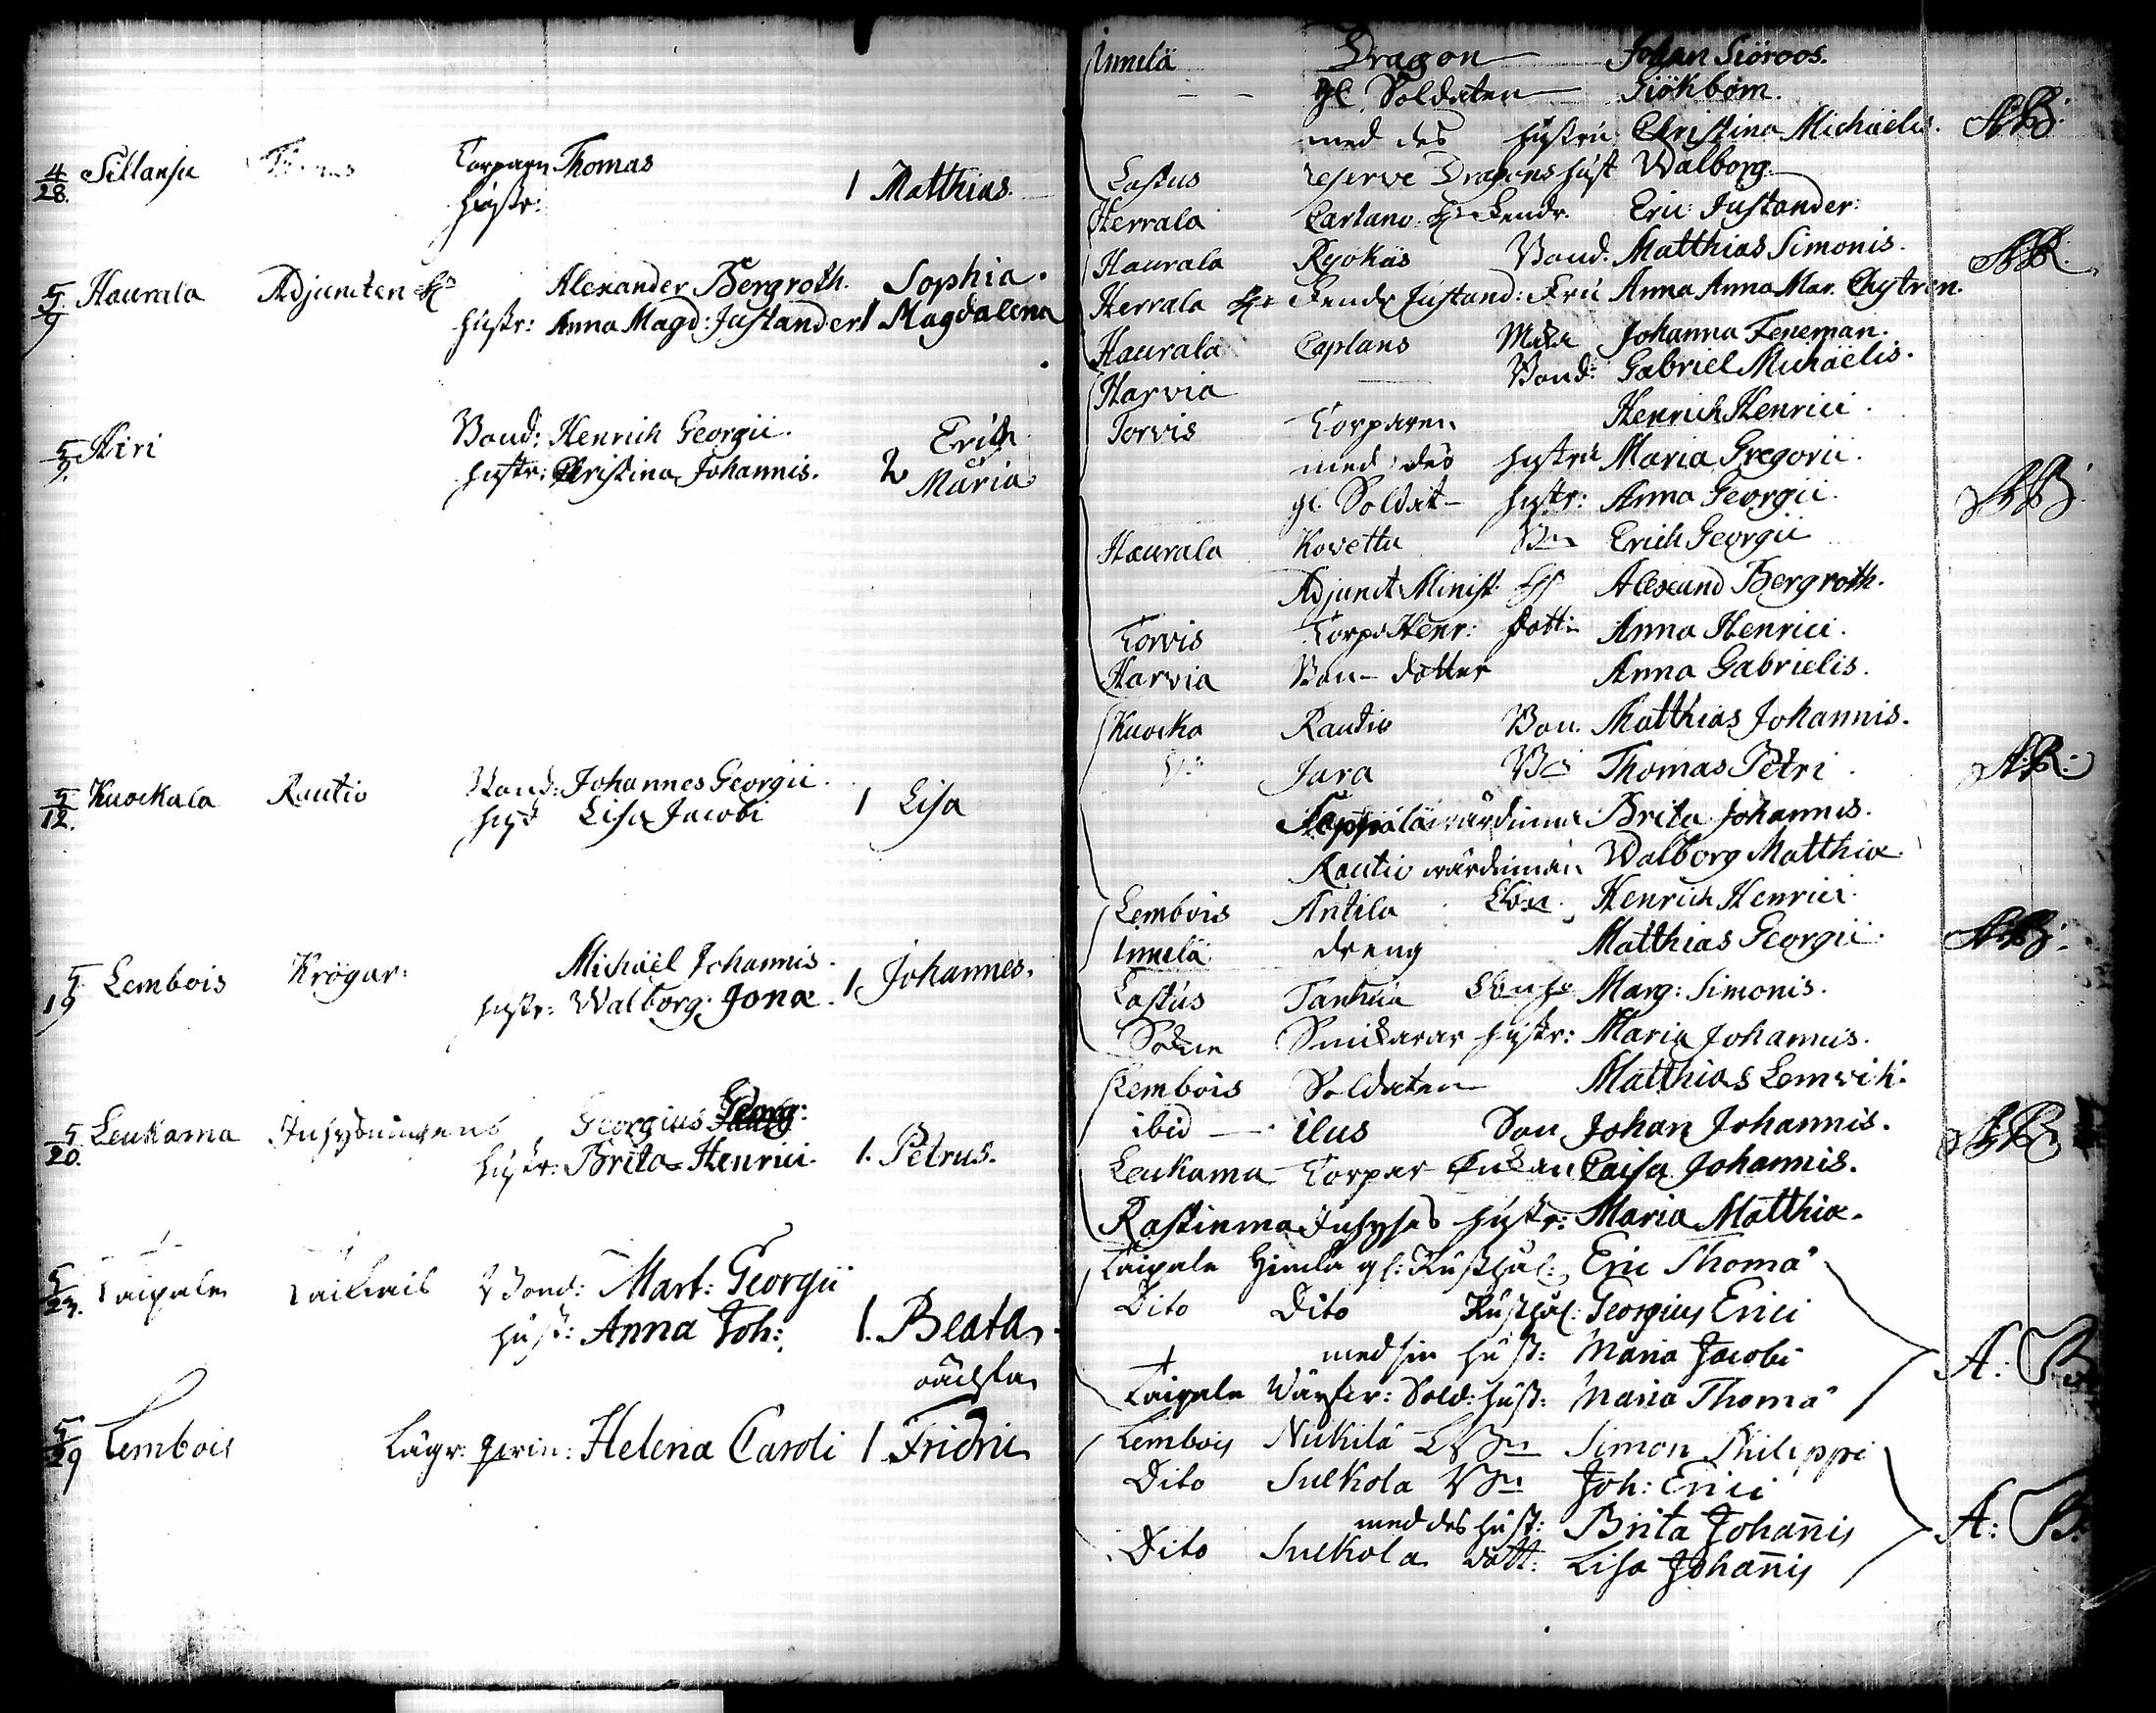 4/28. Sillansu Torparn Thomas 1 Matthias.
hustr:
5/9 Haurala Adjuncten Hr Alexander Bergroth. Sophia.
hustr: Anna Magd: Justander 1 Magdalena
5/9. Hiri Bond: Henrich Georgii. Erich
hustr: Christina Johannis. 2 Maria
5/12. Kuockala Rautio Bond: Johannes Georgii. 1 Lisa
hust Lisa Jacobi
5/19 Lembois Krögar: Michaël Johannis. 1 Johannes.
hustr: Walborg Jonæ.
5/20. Leukama Georgius Georg:
hustr: Brita Henrici. 1. Petrus.
5/23. Taipale Bond: Mart: Georgii
hust: Anna Joh: 1. Beata
oächta
5/29 Lembois Helena Caroli 1 Fridric
Innilä Dragon Johan Siöroos.
gl. Soldaten Giökbom.
med des hustru Christina Michaëlis. A.B.
Lastus reserve Dragons hust Walborg
Herrala Cartano. Hr Fendr. Eric: Justander:
Haurala Ryökäs Bond. Matthias Simonis. A.B.
Herrala Hr Fendr Justand: Fru Anna Anna Mar. Chytræn.
Haurala Caplans Johanna Feneman.
Harvia Bond: Gabriel Michaëlis.
Torvis Torparen Henrich Henrici.
med des hustru Maria Gregorii.
gl. Soldat hustr: Anna Georgii. A.B.
Haurala Kovettu Bn Erich Georgii
Adjunct Minist: Alexand Bergroth.
Torvis Torp Henr: dott: Anna Henrici.
Harvia Bon dotter Anna Gabrielis.
Kuocka Rautio Bon. Matthias Johannis.
Jara Thomas Petri. A.B.
värdinna Brita Johannis.
Rautio värdinnan Walborg Matthiæ.
Lembois Antila Henrich Henrici.
Innilä dreng Matthias Georgii. A.B.
Lastus Tanhua Marg: Simonis.
hustr: Maria Johannis.
Lembois Soldaten Matthias Lemvik.
ibid — ilus Son Johan Johannis. A.B.
Leukama Torpar Enkan Caisa Johannis.
Rastinma Inhyses hustr: Maria Matthiæ.
Taipale Himla gl: Rusthål: Eric Thomæ
Dito Dito Rusthål: Georgius Erici
med sin hust: Maria Jacobi A: B.
Taipale Värfv: Sold: hust: Maria Thomæ
Lembois Nickilä Simon Philippi
Dito Suckola Bn Joh: Erici
med des hust: Brita Johanis A: B.
Dito Suckola dott: Lisa Johanis